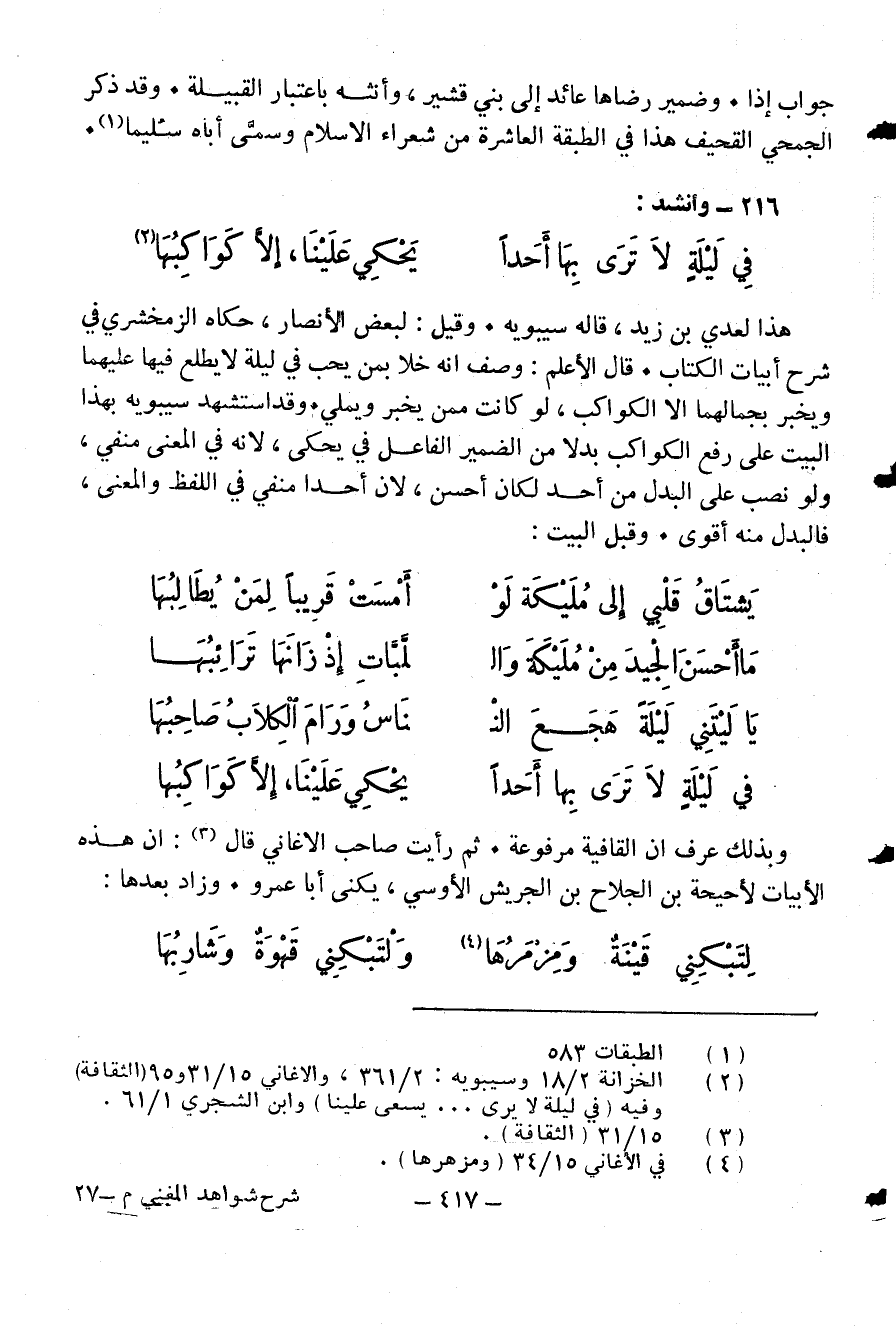 جواب إذا • وضمير رضاها عائد إلى بني قشير ، وأنثـــه باعتبار القبيـــلة • وقد ذكر
الجمحي القحيف هذا في الطبقة العاشرة من شعراء الاسلام وسمَّى أباه سُليما(١)•
٢١٦ – وأنشد :
فِي لَيْلَةٍ لاَ تَرَى بِهَا أَحَداً يَحْكِي عَلَيْنَا، إلاَّ كَوَاكِبُهَا(٢)
هذا لعدي بن زيد ، قاله سيبويه • وقيل : لبعض الأنصار ، حكاه الزمخشري في
شرح أبيات الكتاب • قال الأعلم : وصف انه خلا بمن يحب في ليلة لا يطلع فيها عليهما
ويخبر بجمالهما الا الكواكب ، لو كانت ممن يخبر ويملي•وقداستشهد سيبويه بهذا
البيت على رفع الكواكب بدلا من الضمير الفاعــل في يحكى ، لانه في المعنى منفي ،
ولو نصب على البدل من أحــد لكان أحسن ، لان أحــدا منفي في اللفظ والمعنى ،
فالبدل منه أقوى • وقبل البيت :
يَشتَاقُ قَلْبِي إلى مُلَيْكَة لَوْ أَمْسَتْ قَرِيباً لِمَنْ يُطَالِبُهَا
مَاأَحْسَنَ الْجِيدَ مِنْ مُلَيْكَةَ وَالـ لَّبَّاتِ إذْ زَانَهَا تَرَائِبُهَـــا
يَا لَيْتَنِي لَيْلَةً هَجَـــعَ النْـ نَاسُ وَرَامَ الْكِلاَبُ صَاحِبُهَا
في لَيْلَةٍ لاَ تَرَى بِها أَحَداً يَحْكِي عَلَيْنَا، إلاَّ كَوَاكِبُها
وبذلك عرف ان القافية مرفوعة • ثم رأيت صاحب الاغاني قال (٣) : ان هـــذه
الأبيات لأحيحة بن الجلاح بن الجريش الأوسي ، يكنى أبا عمرو • وزاد بعدها :
لِتَبْكِنِي قَيْنَةٌ وَمِزْمَرُهَا(٤) وَلْتَبْكِنِي قَهْوَةٌ وَشَارِبُهَا
(١) الطبقات ٥٨٣
(٢) الخزانة ١٨/٢ وسيبويه : ٣٦١/٢ ، والاغاني ٣١/١٥و٩٥(الثقافة)
وفيه ( في ليلة لا يرى ... يسعى علينا ) وابن الشجري ٦١/١ .
(٣) ٣١/١٥ ( الثقافة ) .
(٤) في الأغاني ٣٤/١٥ ( ومزهرها ) .
– ٤١٧ – شرح شواهد المغني م –٢٧